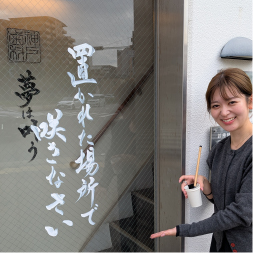 置かれた場所で
咲きなさい
夢は叶う